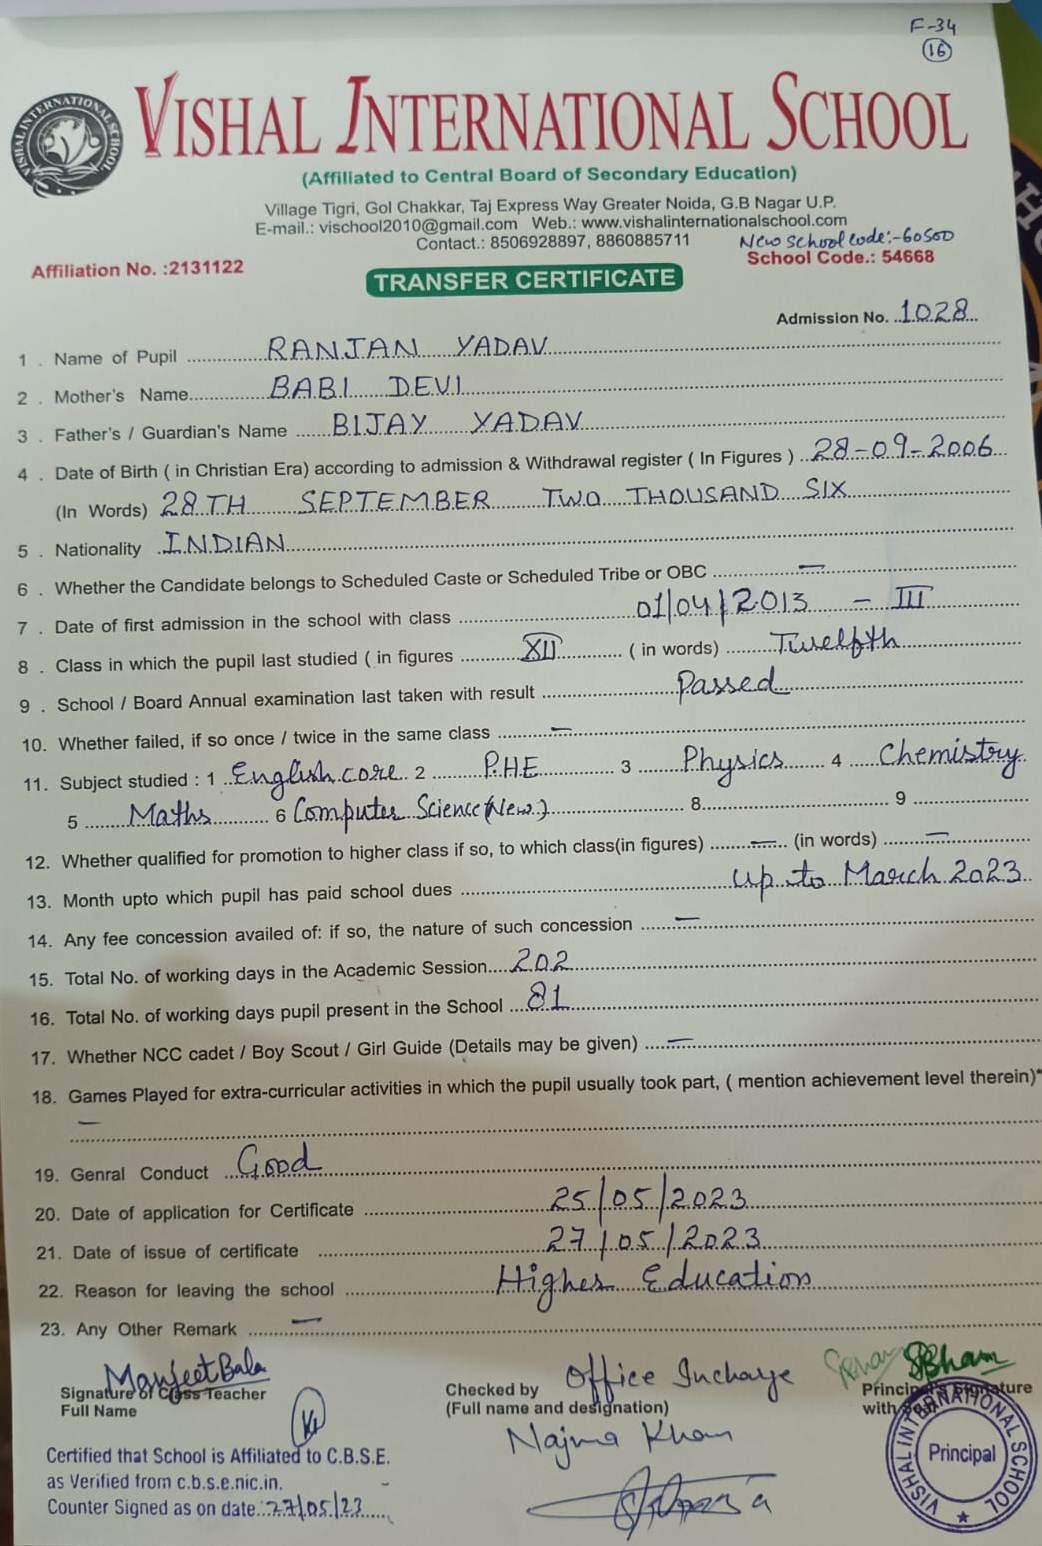 F-34
16
VISHAL INTERNATIONAL SCHOOL
VISHAL INTERNATIONAL SCHOOL
(Affiliated to Central Board of Secondary Education)
Village Tigri, Gol Chakkar, Taj Express Way Greater Noida, G.B Nagar U.P.
E-mail.: vischool2010@gmail.com Web.: www.vishalinternationalschool.com
Contact.: 8506928897, 8860885711
New School Code:-60500
Affiliation No. :2131122
School Code.: 54668
TRANSFER CERTIFICATE
Admission No. 1028
1 . Name of Pupil RANJAN YADAV
2 . Mother's Name BABI DEVI
3 . Father's / Guardian's Name BIJAY YADAV
4 . Date of Birth ( in Christian Era) according to admission & Withdrawal register ( In Figures ) 28-09-2006
(In Words) 28TH SEPTEMBER TWO THOUSAND SIX
5 . Nationality INDIAN
6 . Whether the Candidate belongs to Scheduled Caste or Scheduled Tribe or OBC —
7 . Date of first admission in the school with class 01/04/2013 - III
8 . Class in which the pupil last studied ( in figures XII ( in words) Twelfth
9 . School / Board Annual examination last taken with result Passed
10. Whether failed, if so once / twice in the same class —
11. Subject studied : 1 English core 2 P.HE 3 Physics 4 Chemistry
5 Maths 6 Computer Science (New) 8 9
12. Whether qualified for promotion to higher class if so, to which class(in figures) — (in words) —
13. Month upto which pupil has paid school dues up to March 2023
14. Any fee concession availed of: if so, the nature of such concession —
15. Total No. of working days in the Academic Session 202
16. Total No. of working days pupil present in the School 81
17. Whether NCC cadet / Boy Scout / Girl Guide (Details may be given) —
18. Games Played for extra-curricular activities in which the pupil usually took part, ( mention achievement level therein)*
—
19. Genral Conduct Good
20. Date of application for Certificate 25/05/2023
21. Date of issue of certificate 27/05/2023
22. Reason for leaving the school Higher Education
23. Any Other Remark —
Manjeet Bala
Signature of Class Teacher
Full Name
Checked by Office Incharge
(Full name and designation)
Najma Khan
Principal's Signature
with Seal
VISHAL INTERNATIONAL SCHOOL
Principal
Certified that School is Affiliated to C.B.S.E.
as Verified from c.b.s.e.nic.in.
Counter Signed as on date:27/05/23